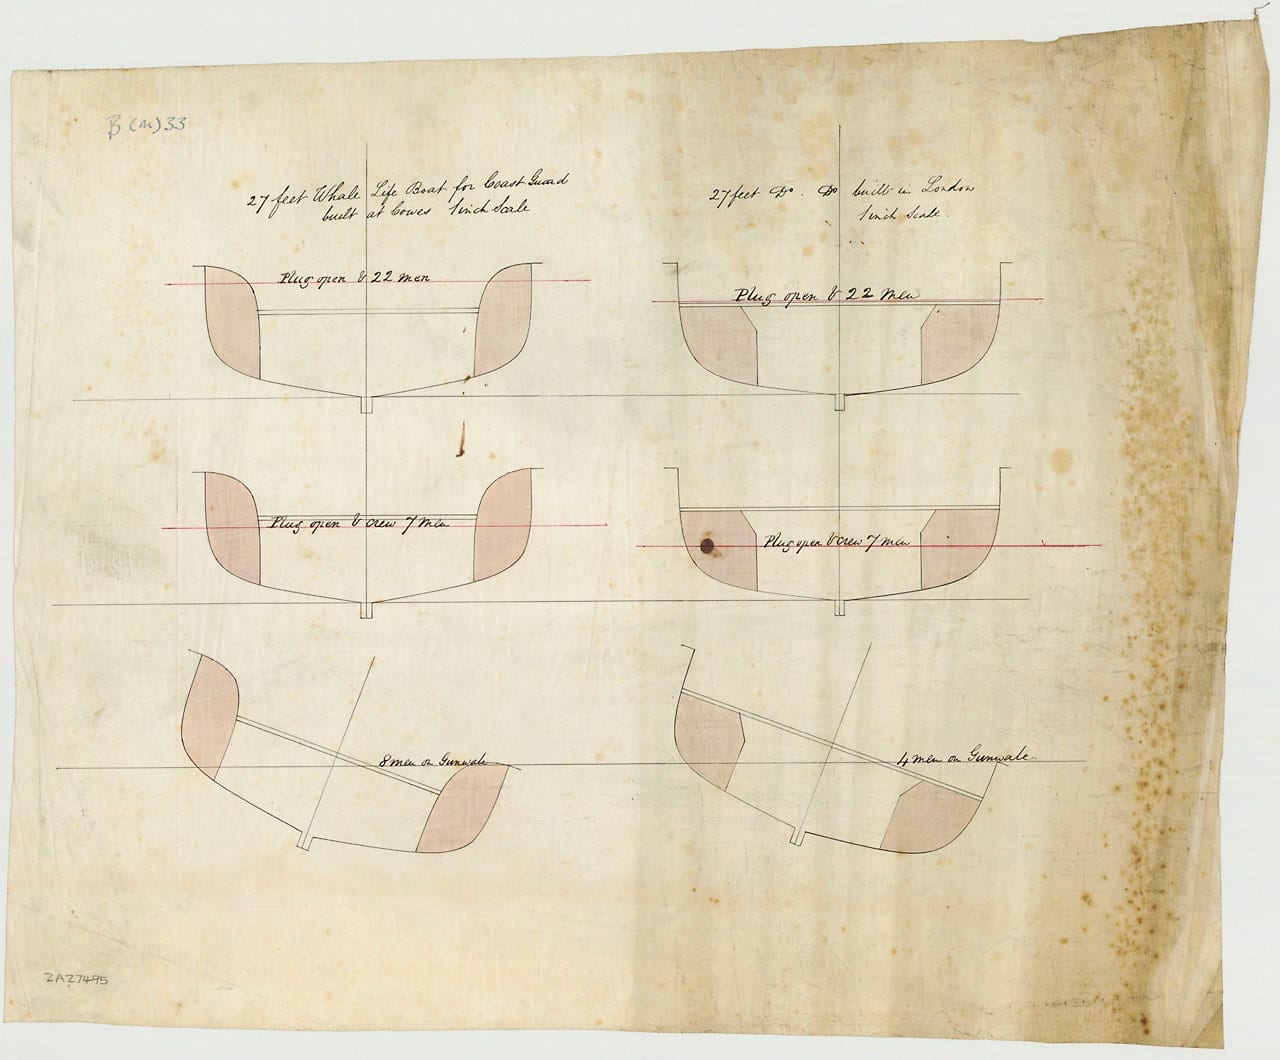 B (M) 33
27 feet Whale Life Boat for Coast Guard
built at Cowes 1 inch Scale
27 feet Do. Do built in London
1 inch Scale.
Plug open & 22 men
Plug open & 22 Men
Plug open & crew 7 Men
Plug open & crew 7 men
8 men on Gunwale
4 men on Gunwale.
ZAZ7495